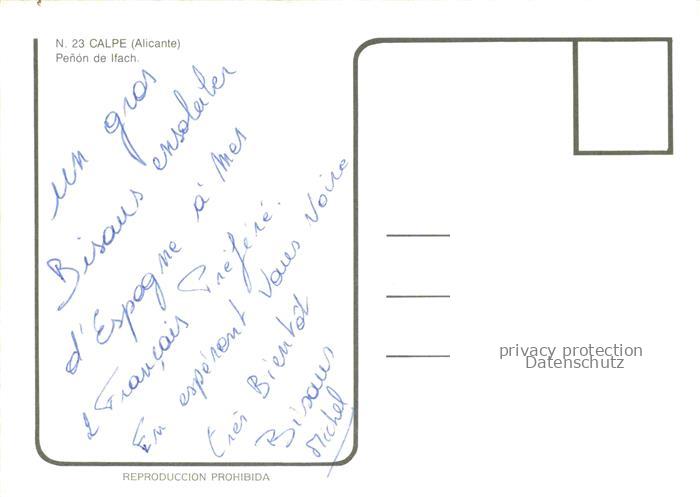 N. 23 CALPE (Alicante)
Peñón de Ifach.
un gros
Bisous ensoleiller
d'Espagne à mes
2 Français Préféré.
En espérant Vous Voire
très Bientot
Bisous
Michel
privacy protection
Datenschutz
REPRODUCCION PROHIBIDA